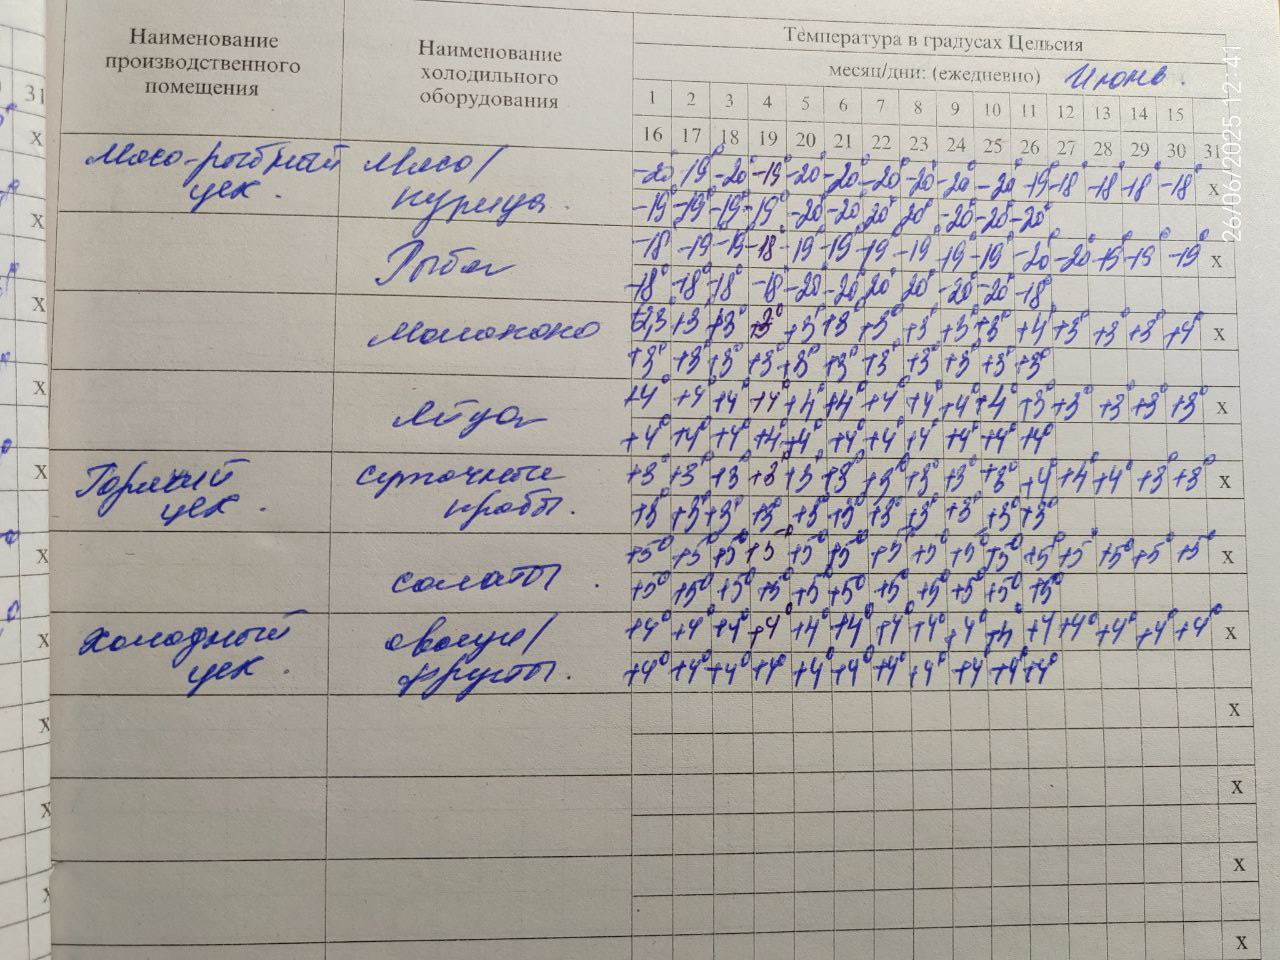 Наименование
производственного
помещения
Наименование
холодильного
оборудования
Температура в градусах Цельсия
месяц/дни: (ежедневно) Июнь.
31 1 2 3 4 5 6 7 8 9 10 11 12 13 14 15
16 17 18 19 20 21 22 23 24 25 26 27 28 29 30 31
Мясо-рыбный
цех.
Мясо/
курица.
-20° 19° -20° -19° -20° -20° -20° -20° -20° -20° -19° -18° -18° -18° -18° х
-19° -19° -19° -19° -20° -20° 20° 20° -20° -20° -20°
Рыба
-18° -19 -19 -18° -19° -19° -19° -19° -19° -19° -20° -20° -19° -19° -19° х
-18° -18° -18° -18° -20° -20° 20° 20° -20° -20° -18°
Молоконо
+3 +3° +3° +3° +3° +3° +3° +3° +3° +4° +3° +3° +3° +4° х
+3° +3° +3° +3° +3° +3° +3° +3° +3° +3° +3°
Яйца
+4° +4° +4° +4° +4° +4° +4° +4° +4° +4° +3° +3° +3° +3° +3° х
+4° +4° +4° +4° +4° +4° +4° +4° +4° +4° +4°
Горячий
цех.
суточные
пробы.
+3° +3° +3° +3° +3° +3° +3° +3° +3° +3° +4° +4° +4° +3° +3° х
+3° +3° +3° +3° +3° +3° +3° +3° +3° +3° +3°
салаты.
+5° +5° +5° +5° +5° +5° +5° +5° +5° +5° +5° +5° +5° +5° +5° х
+5° +5° +5° +5° +5° +5° +5° +5° +5° +5° +5°
Холодный
цех.
овощи/
фрукты.
+4° +4° +4° +4° +4° +4° +4° +4° +4° +4° +4 +4° +4° +4° +4° х
+4° +4° +4° +4° +4° +4° +4° +4° +4° +4° +4°
х
х
х
х
26/06/2025 12:41